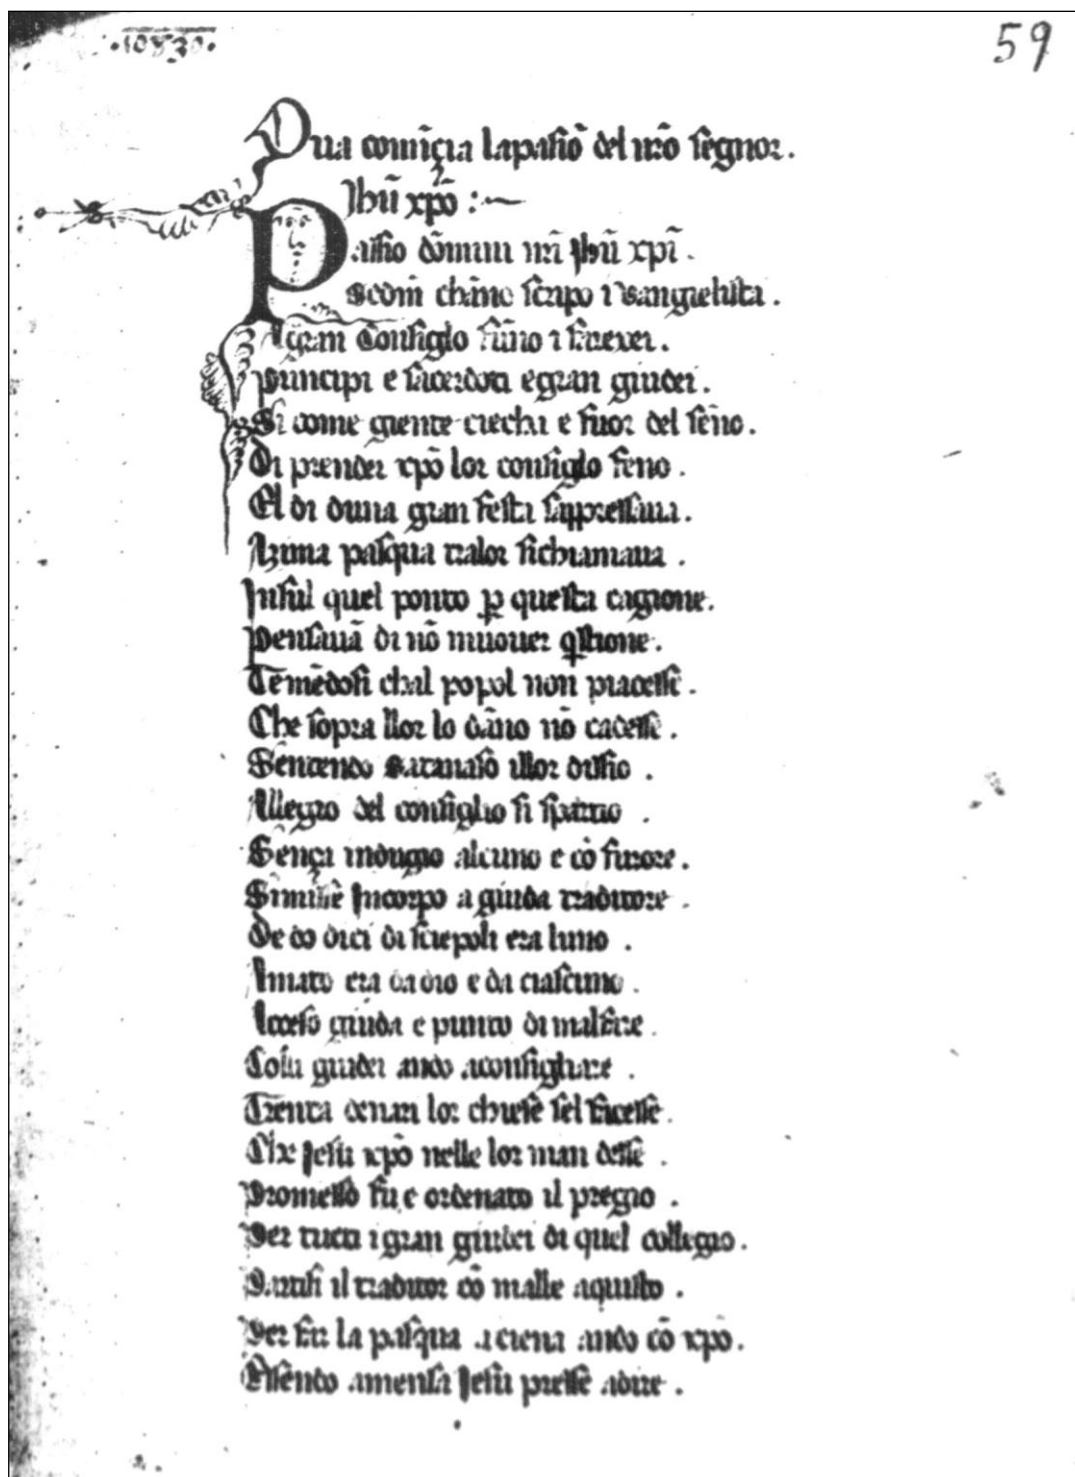 59
Qua comīçia lapasiō del nr̄o segnor.
Jhū xp̄o :~
Passio dōmini nr̄i Jhū xp̄i.
chōmo scripo i vangielista.
gran Consiglo fūno i farexei.
prīncipi e sacerdoti egran giudei.
Si come giente ciecha e fuor del sēno.
Di prender xp̄o lor consiglo feno.
El di duna gran festa sappressaua.
Azima pasqua tralor sichiamaua.
Jnsul quel ponto ꝑ questa cagione.
Pensauā di nō muouer q̄stione.
Tēmēdosi chal popol non piacesse.
Che sopra llor lo dāno nō cadesse.
Sentendo satanaso illor disio.
Allegro del consiglio si spartio.
Sença indugio alcuno e cō furore.
Simisse Jncorpo a giuda traditore.
De do dici discepoli era luno.
Amato era da dio e da ciascuno.
Acceso giuda e punto di malfare.
Cosu giudei ando aconsigliare.
Trenta denari lor chiese sel facesse.
Che Jesu xp̄o nelle lor man desse.
Promesso fu e ordenato il pregio.
Per tutti igran giudei di quel collegio.
Partisi il traditor cō malle aquisto.
Per far la pasqua a ciena ando cō xp̄o.
Essendo amensa Jesu presse adire.